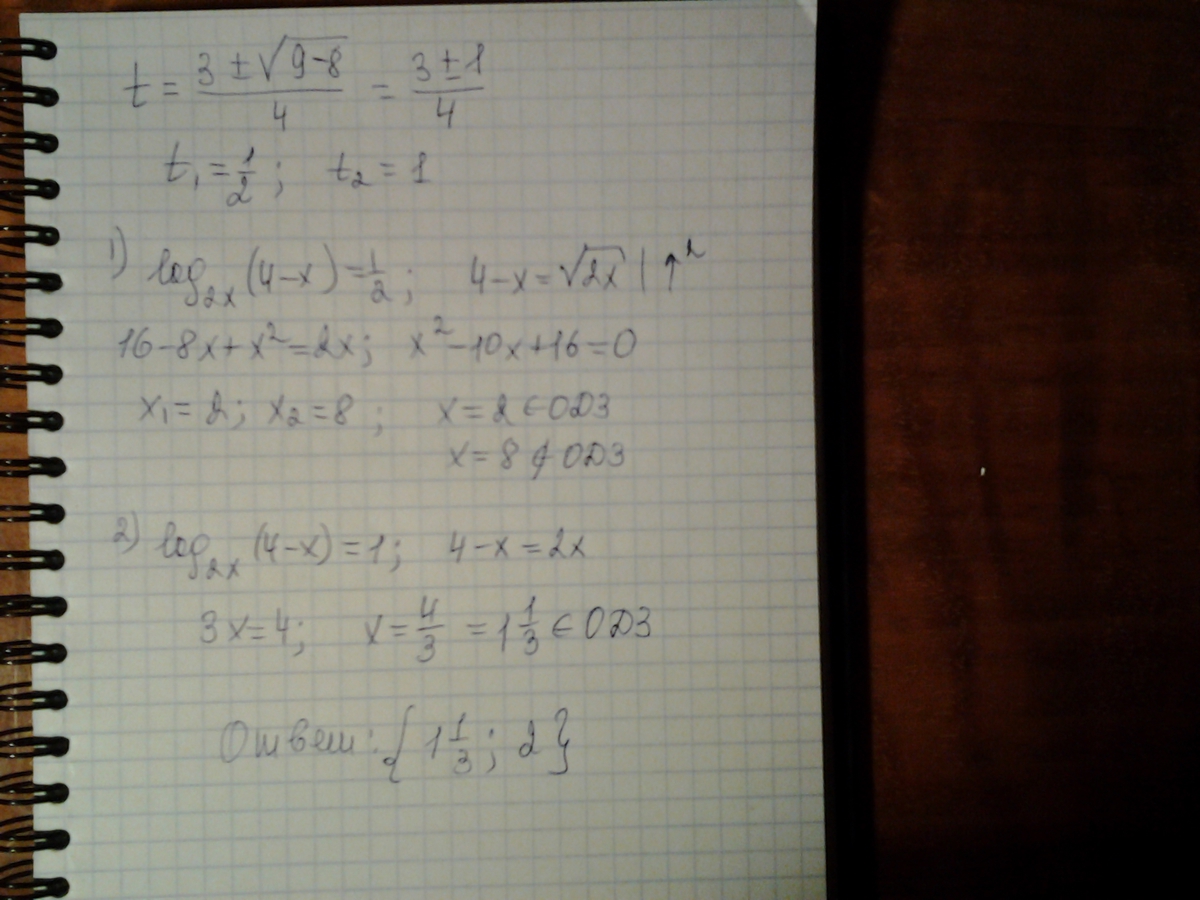 t = (3 ± √(9-8))/4 = (3 ± 1)/4
t₁ = 1/2; t₂ = 1
1) log₂ₓ(4-x) = 1/2; 4-x = √(2x) | ↑²
16-8x+x² = 2x; x²-10x+16=0
x₁ = 2; x₂ = 8; x = 2 ∈ ОДЗ
x = 8 ∉ ОДЗ
2) log₂ₓ(4-x) = 1; 4-x = 2x
3x = 4; x = 4/3 = 1 1/3 ∈ ОДЗ
Ответ: {1 1/3; 2}